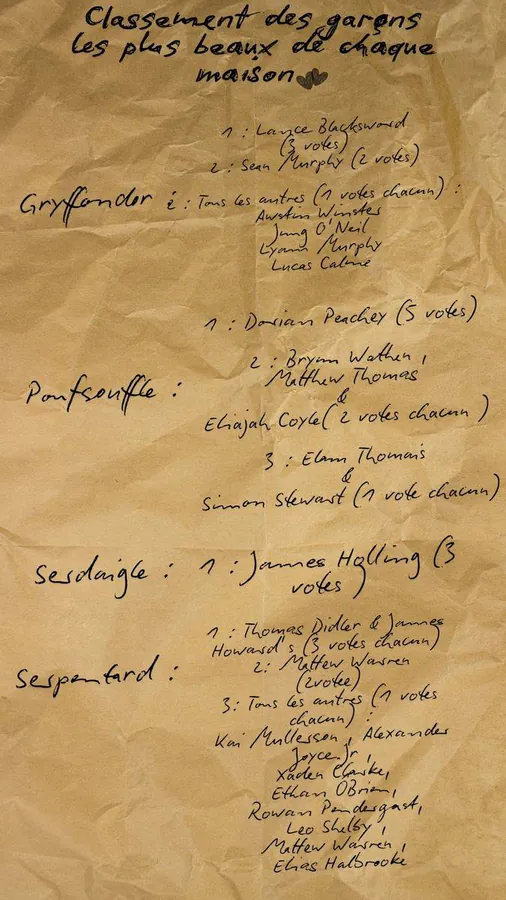 Classement des garçons
les plus beaux de chaque
maison
Gryffondor :
1 : Lance Blacksword
(3 votes)
2 : Sean Murphy (2 votes)
Tous les autres (1 votes chacun) :
Awstin Winster
Jung O'Neil
Lyann Murphy
Lucas Calme
Poufsouffle :
1 : Dorian Peachey (5 votes)
2 : Brynn Wathen,
Matthew Thomas
&
Eliajah Coyle (2 votes chacun)
3 : Elam Thomais
&
Simon Stewart (1 vote chacun)
Serdaigle :
1 : James Holling (3
votes)
Serpentard :
1 : Thomas Didler & James
Howard's (3 votes chacun)
2 : Mattew Warren
(2 votes)
3 : Tous les autres (1 votes
chacun) :
Kai Mullerson, Alexander
Joyce Jr,
Xaden Clarke,
Ethan OBrien,
Rowan Pendergast,
Leo Shelby,
Mattew Warren,
Elias Halbrooke